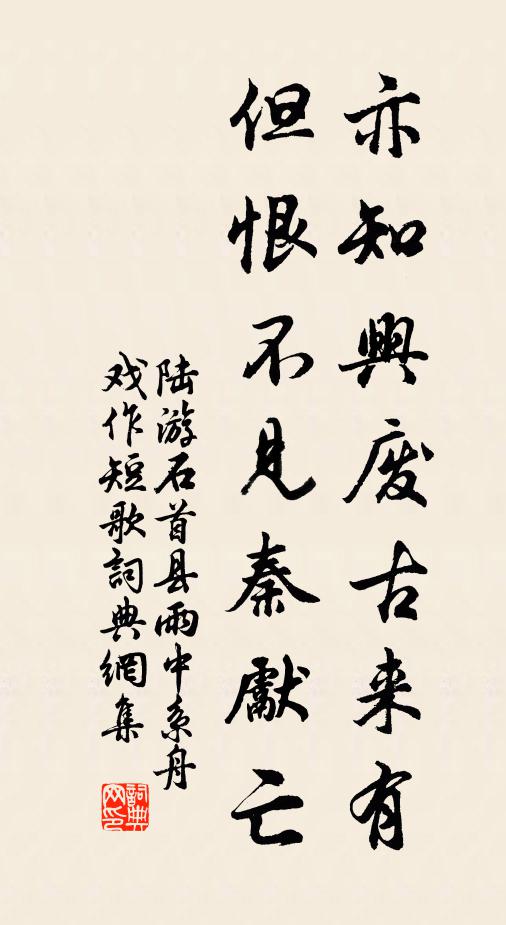 亦知興废古来有
但恨不見秦獻亡
陆游石首县雨中系舟
戏作短歌詞典網集
詞典网印